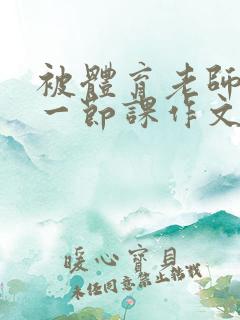 被體育老師
一節課作文
暖心寶貝
未经同意禁止转载